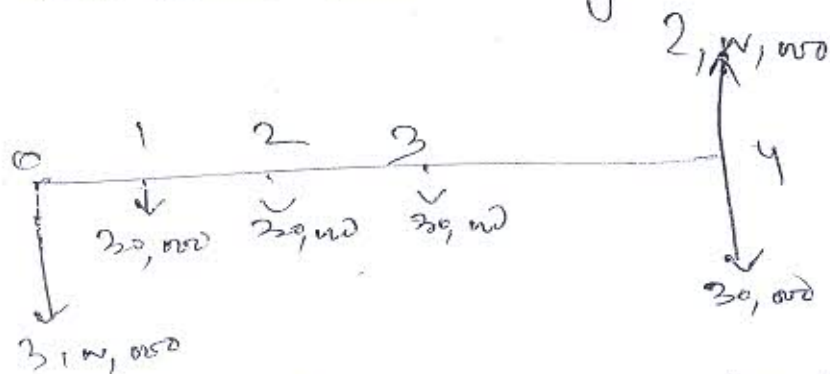 2,00,000
0 1 2 3 4
30,000 30,000 30,000
30,000
3,00,000